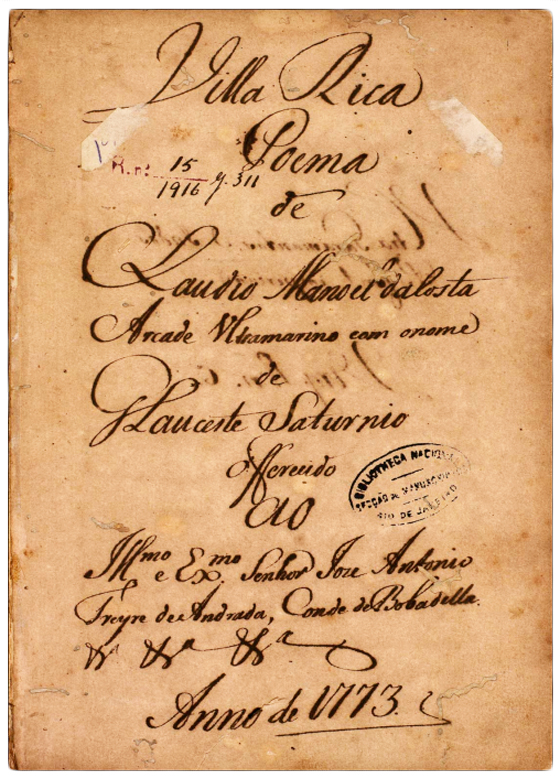 Villa Rica
Poema
R. n.: 15
1916
de
Claudio Manoel dacosta
Arcade Vltramarino com onome
de
Glauceste Saturnio
Offerecido
ao
BIBLIOTHECA NACIONAL
SECÇÃO de MANUSCRIPTOS
RIO DE JANEIRO
Illmo e Exmo. Senhor Joze Antonio
Freyre de Andrada, Conde de Bobadella.
&a &a &a
Anno de 1773.